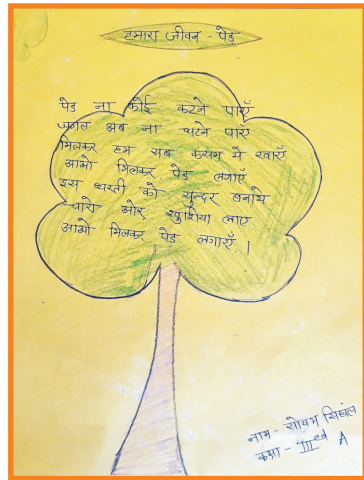 हमारा जीवन - पेड़
पेड़ ना कोई कटने पाएँ
जंगल अब ना घटने पाएँ
मिलकर हम सब कसम ये खाएँ
आओ मिलकर पेड़ लगाएँ
इस धरती को सुन्दर बनाये
चारो ओर खुशिया लाए
आओ मिलकर पेड़ लगाएँ ।
नाम - सोयम सिंघल
कक्षा - III ed A